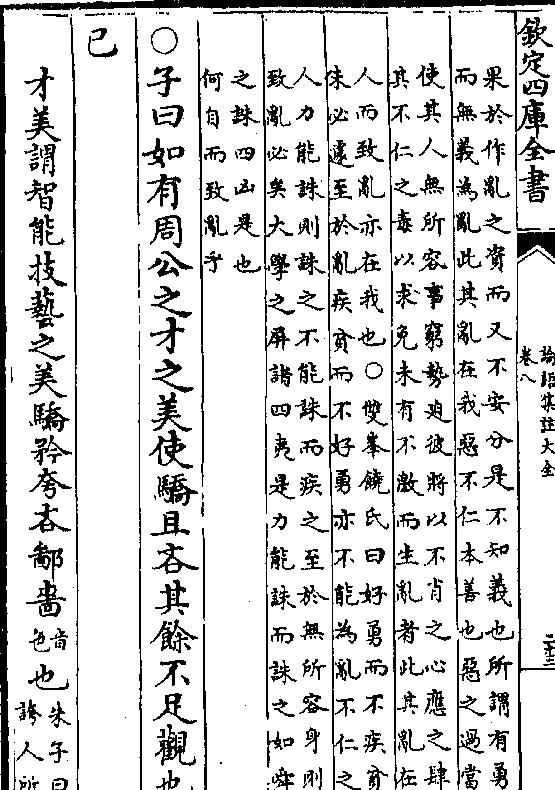 欽定四庫全書
論語集註大全
卷八
果於作亂之資而又不安分是不知義也所謂有勇
而無義為亂此其亂在我惡不仁本善也惡之過當
使其人無所容事窮勢迫彼將以不肖之心應之肆
其不仁之毒以求免未有不激而生亂者此其亂在
人而致亂亦在我也○雙峯饒氏曰好勇而不疾貧
未必遽至於亂疾貧而不好勇亦不能為亂不仁之
人力能誅則誅之不能誅而疾之至於無所容身則
致亂必矣大學之屏諸四夷是力能誅而誅之如舜
之誅四凶是也
何自而致亂乎
○子曰如有周公之才之美使驕且吝其餘不足觀也
已
才美謂智能技藝之美驕矜夸吝鄙嗇音色也朱子曰
誇人所